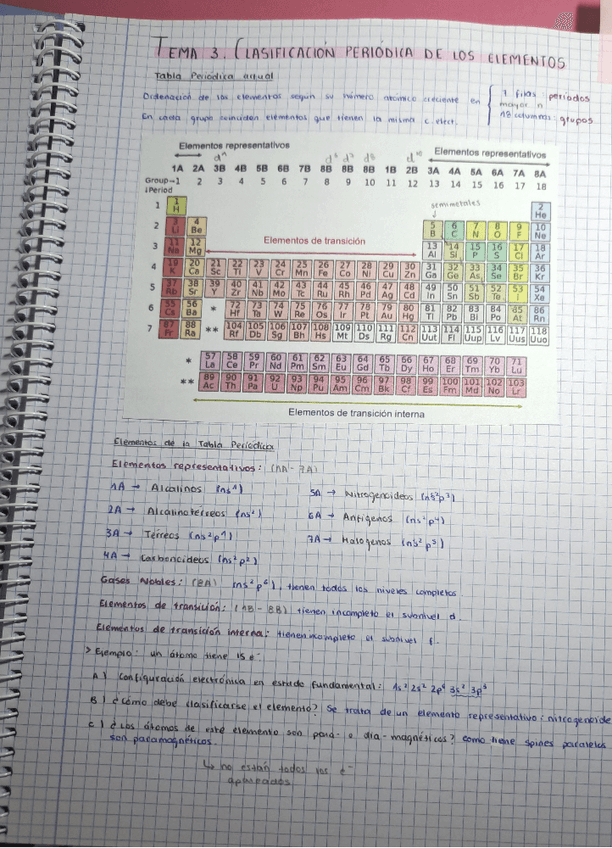 TEMA 3. CLASIFICACIÓN PERIÓDICA DE LOS ELEMENTOS
Tabla Periódica actual
Ordenación de los elementos según su número atómico creciente en
7 filas: periodos
mayor n
18 columnas: grupos
En cada grupo coinciden elementos que tienen la misma c. elect.
Elementos representativos
Elementos representativos
d¹ d⁶ d⁷ d⁸ d¹⁰
1A 2A 3B 4B 5B 6B 7B 8B 8B 8B 1B 2B 3A 4A 5A 6A 7A 8A
Group→1 2 3 4 5 6 7 8 9 10 11 12 13 14 15 16 17 18
↓Period
semimetales
1 1 H 2 He
2 3 Li 4 Be 5 B 6 C 7 N 8 O 9 F 10 Ne
3 11 Na 12 Mg Elementos de transición 13 Al 14 Si 15 P 16 S 17 Cl 18 Ar
4 19 K 20 Ca 21 Sc 22 Ti 23 V 24 Cr 25 Mn 26 Fe 27 Co 28 Ni 29 Cu 30 Zn 31 Ga 32 Ge 33 As 34 Se 35 Br 36 Kr
5 37 Rb 38 Sr 39 Y 40 Zr 41 Nb 42 Mo 43 Tc 44 Ru 45 Rh 46 Pd 47 Ag 48 Cd 49 In 50 Sn 51 Sb 52 Te 53 I 54 Xe
6 55 Cs 56 Ba * 72 Hf 73 Ta 74 W 75 Re 76 Os 77 Ir 78 Pt 79 Au 80 Hg 81 Tl 82 Pb 83 Bi 84 Po 85 At 86 Rn
7 87 Fr 88 Ra ** 104 Rf 105 Db 106 Sg 107 Bh 108 Hs 109 Mt 110 Ds 111 Rg 112 Cn 113 Uut 114 Fl 115 Uup 116 Lv 117 Uus 118 Uuo
* 57 La 58 Ce 59 Pr 60 Nd 61 Pm 62 Sm 63 Eu 64 Gd 65 Tb 66 Dy 67 Ho 68 Er 69 Tm 70 Yb 71 Lu
** 89 Ac 90 Th 91 Pa 92 U 93 Np 94 Pu 95 Am 96 Cm 97 Bk 98 Cf 99 Es 100 Fm 101 Md 102 No 103 Lr
Elementos de transición interna
Elementos de la Tabla Periódica
Elementos representativos: (1A - 7A)
1A → Alcalinos (ns¹)
2A → Alcalinotérreos (ns²)
3A → Térreos (ns²p¹)
4A → Carbonoideos (ns²p²)
5A → Nitrogenoideos (ns²p³)
6A → Anfígenos (ns²p⁴)
7A → Halógenos (ns²p⁵)
Gases Nobles: (8A) (ns²p⁶), tienen todos los niveles completos
Elementos de transición: (1B - 8B) tienen incompleto el subnivel d.
Elementos de transición interna: tienen incompleto el subnivel f.
> Ejemplo: un átomo tiene 15 e⁻
A) Configuración electrónica en estado fundamental: 1s² 2s² 2p⁶ 3s² 3p³
B) ¿Cómo debe clasificarse el elemento? Se trata de un elemento representativo: nitrogenoide
C) ¿Los átomos de este elemento son para- o dia-magnéticos? Como tiene spines paralelos
son paramagnéticos.
↳ no están todos los e⁻
apareados